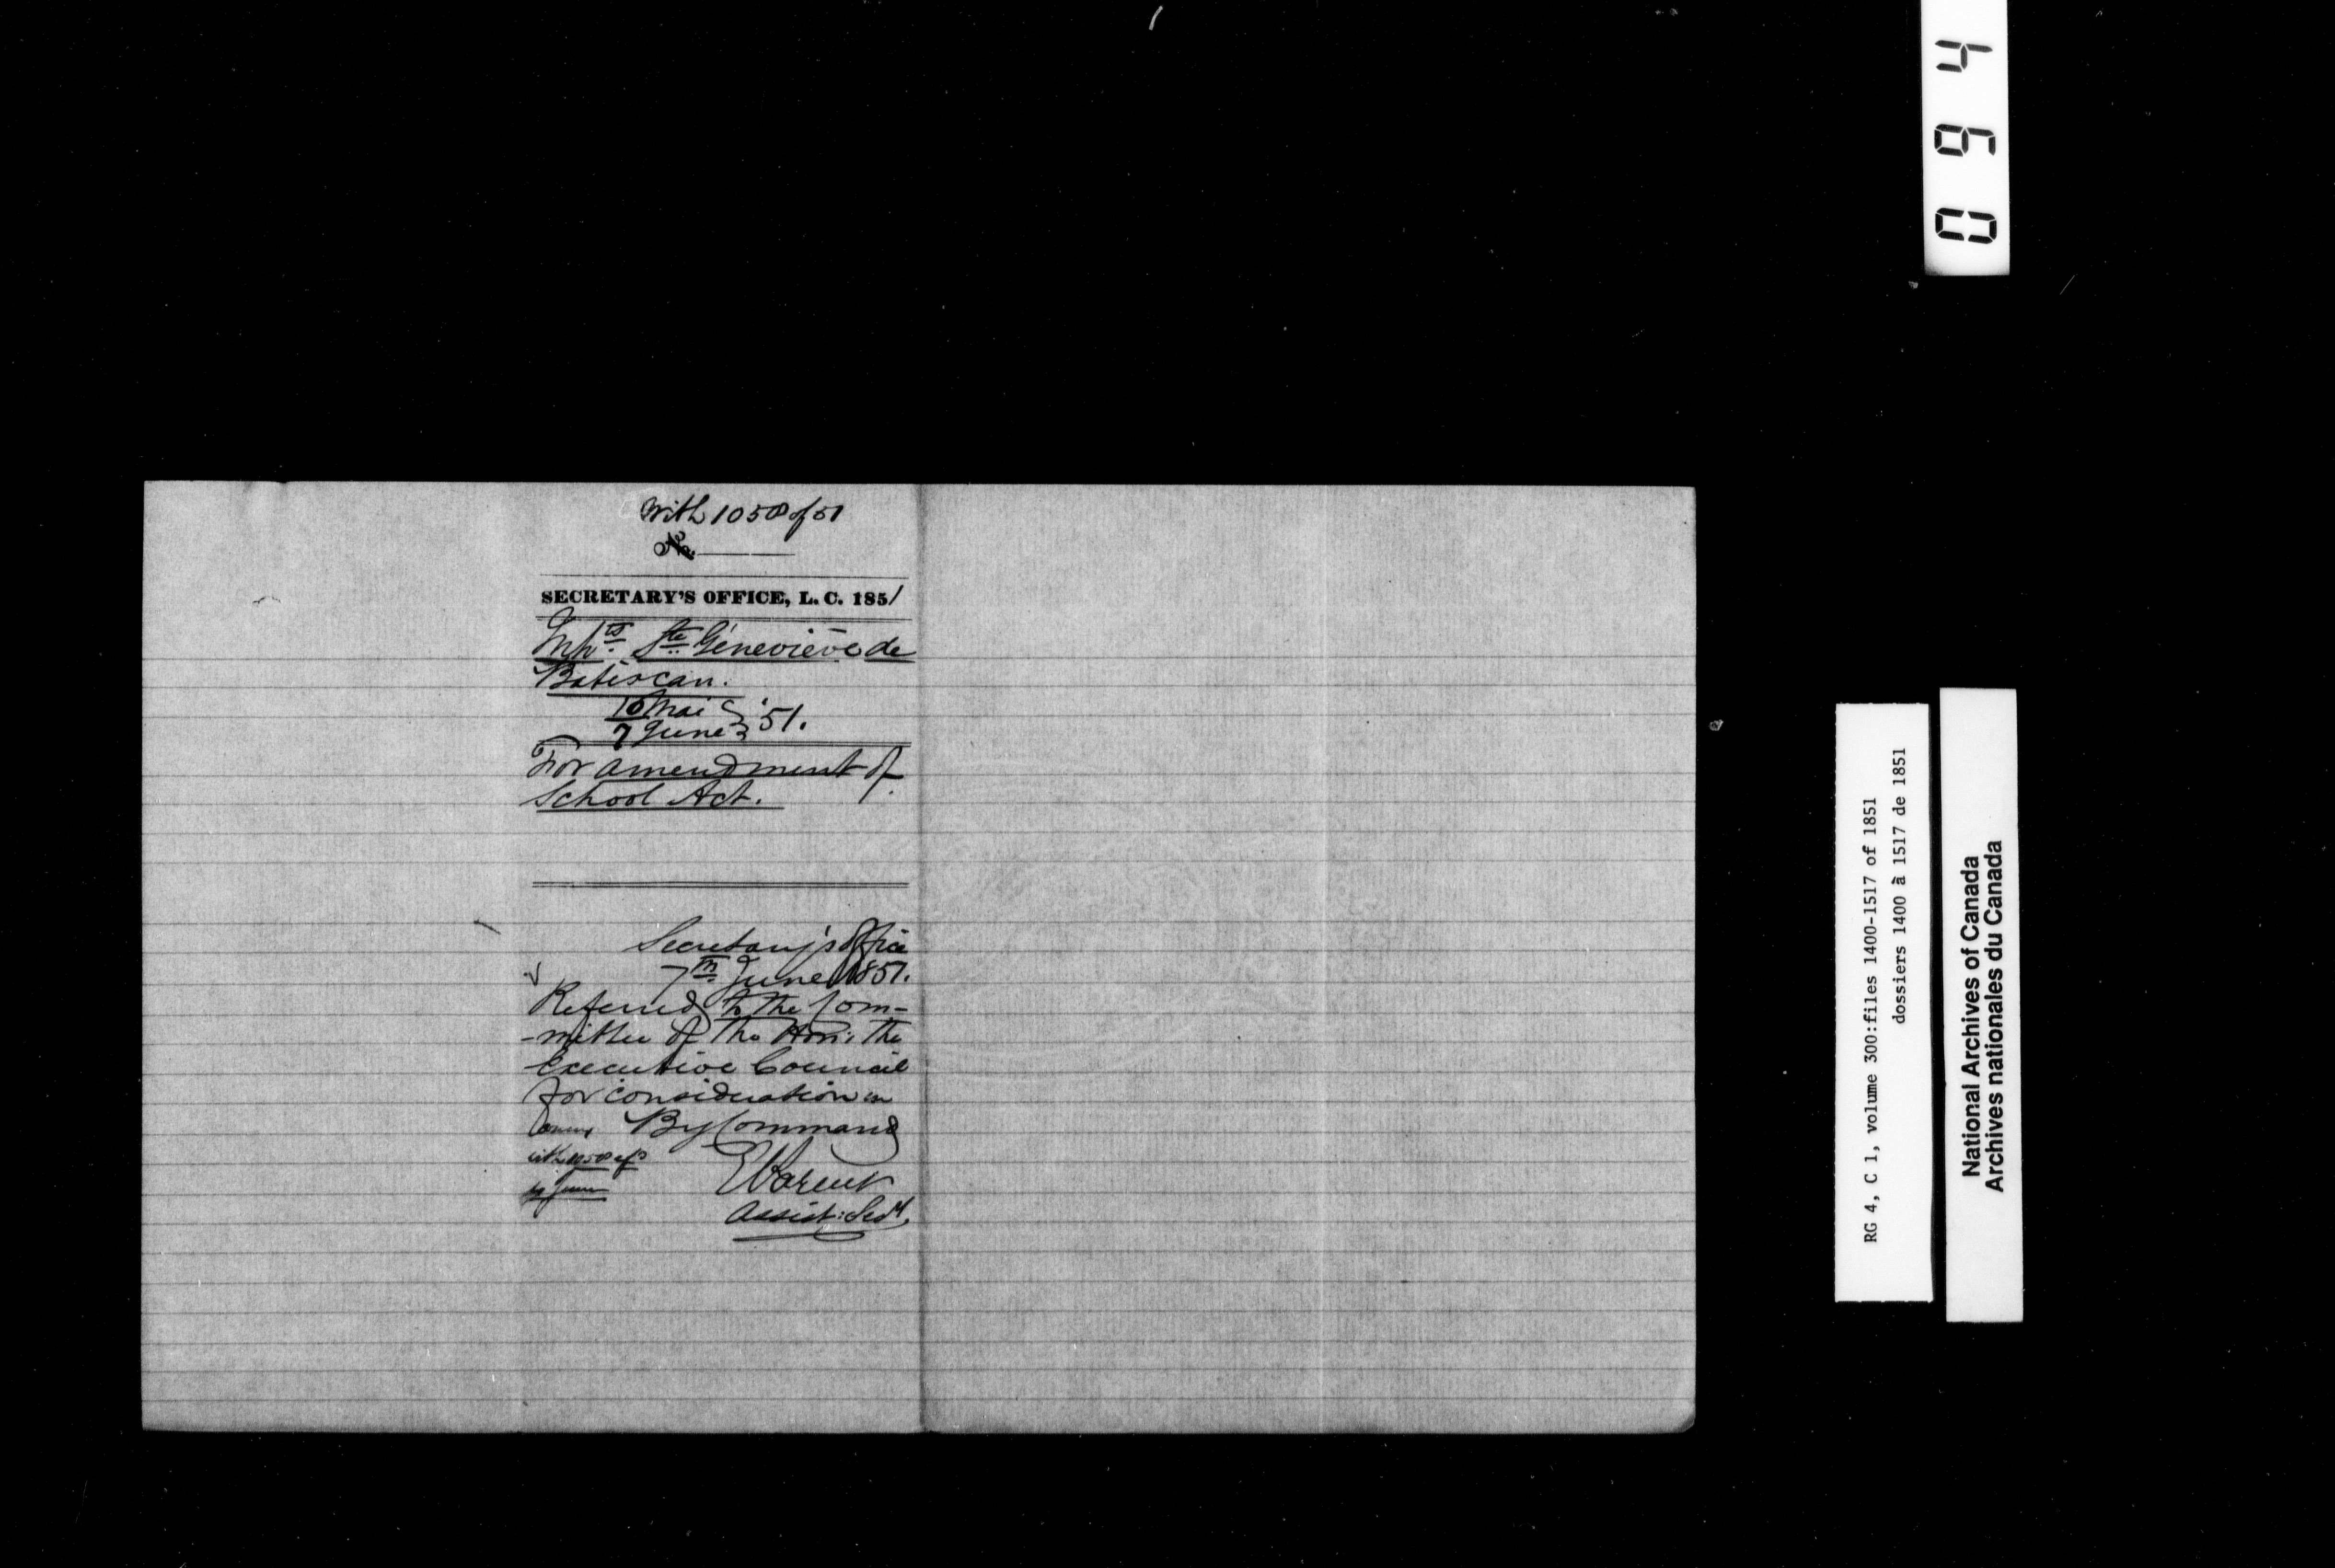 with 1058 of 51
No.
SECRETARY'S OFFICE, L. C. 1851
Inhts. Ste Géneviève de
Batiscan.
10 Mai
7 June } '51.
For amendment of
School Act.
Secretary's Office
7th June 1851.
Referred to the Com-
-mittee of the Hon: the
Executive Council
for consideration in
By Command
with 1058 of
E Parent
Assist: Secy.
0 9 4
RG 4, C 1, volume 300:files 1400-1517 of 1851
dossiers 1400 à 1517 de 1851
National Archives of Canada
Archives nationales du Canada